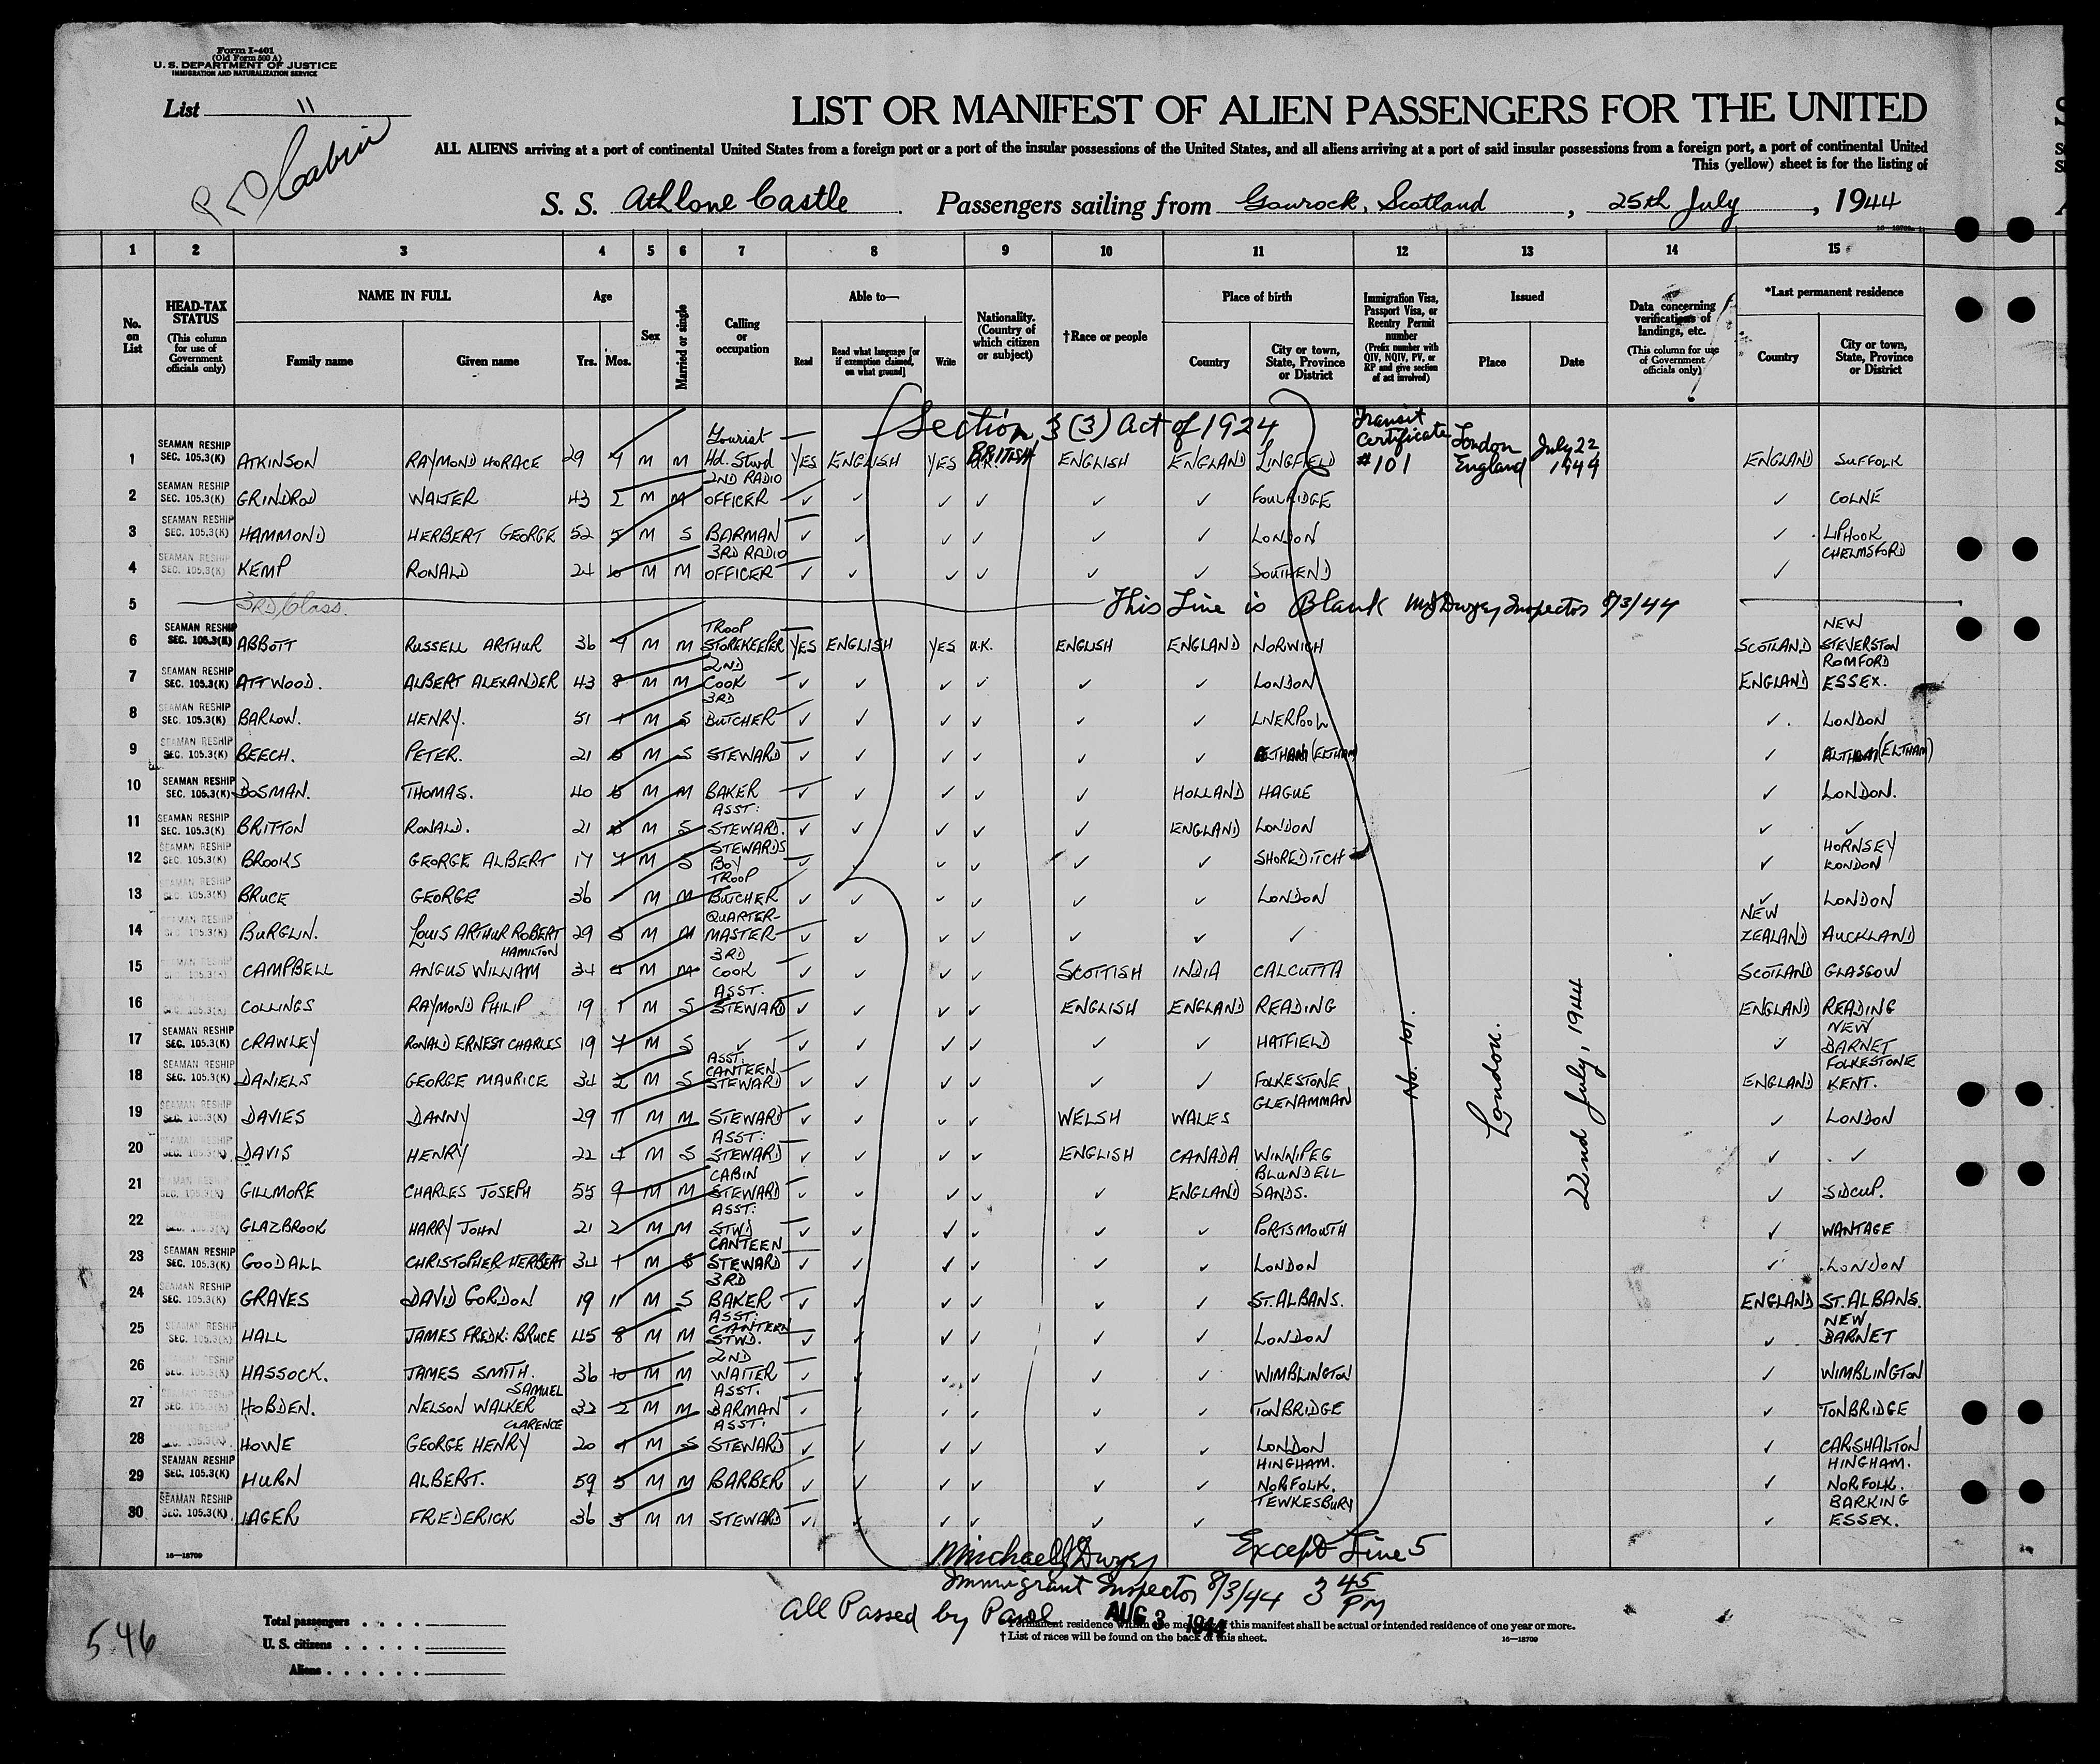 Form I-401
(Old Form 500 A)
U. S. DEPARTMENT OF JUSTICE
IMMIGRATION AND NATURALIZATION SERVICE
List 11
Cabin
LIST OR MANIFEST OF ALIEN PASSENGERS FOR THE UNITED
ALL ALIENS arriving at a port of continental United States from a foreign port or a port of the insular possessions of the United States, and all aliens arriving at a port of said insular possessions from a foreign port, a port of continental United
This (yellow) sheet is for the listing of
S. S. Athlone Castle Passengers sailing from Gourock, Scotland, 25th July, 1944
1 2 3 4 5 6 7 8 9 10 11 12 13 14 15
No. on List
HEAD-TAX STATUS (This column for use of Government officials only)
NAME IN FULL Family name Given name
Age Yrs. Mos.
Sex
Married or single
Calling or occupation
Able to— Read Read what language [or if exemption claimed, on what ground] Write
Nationality. (Country of which citizen or subject)
†Race or people
Place of birth Country City or town, State, Province or District
Immigration Visa, Passport Visa, or Reentry Permit number (Prefix number with QIV, NQIV, PV, or RP and give section of act involved)
Issued Place Date
Data concerning verifications of landings, etc. (This column for use of Government officials only)
*Last permanent residence Country City or town, State, Province or District
Section 3 (3) Act of 1924
1 SEAMAN RESHIP SEC. 105.3(K) ATKINSON RAYMOND HORACE 29 4 M M Tourist Hd. Stwd YES ENGLISH YES U.K. BRITISH ENGLISH ENGLAND LINGFIELD Transit Certificate #101 London England July 22 1944 ENGLAND SUFFOLK
2 SEAMAN RESHIP SEC. 105.3(K) GRINDROD WALTER 43 2 M M 2ND RADIO OFFICER ✓ ✓ ✓ ✓ ✓ ✓ FOULRIDGE ✓ COLNE
3 SEAMAN RESHIP SEC. 105.3(K) HAMMOND HERBERT GEORGE 52 5 M S BARMAN ✓ ✓ ✓ ✓ ✓ ✓ LONDON ✓ LIPHOOK
4 SEAMAN RESHIP SEC. 105.3(K) KEMP RONALD 24 10 M M 3RD RADIO OFFICER ✓ ✓ ✓ ✓ ✓ ✓ SOUTHEND ✓ CHELMSFORD
5 3RD Class. This Line is Blank MJ Dwyer Inspector 8/3/44
6 SEAMAN RESHIP SEC. 105.3(K) ABBOTT RUSSELL ARTHUR 36 4 M M TROOP STOREKEEPER YES ENGLISH YES U.K. ENGLISH ENGLAND NORWICH SCOTLAND NEW STEVERSTON
7 SEAMAN RESHIP SEC. 105.3(K) ATTWOOD. ALBERT ALEXANDER 43 8 M M 2ND COOK ✓ ✓ ✓ ✓ ✓ ✓ LONDON ENGLAND ROMFORD ESSEX.
8 SEAMAN RESHIP SEC. 105.3(K) BARLOW. HENRY. 51 1 M S 3RD BUTCHER ✓ ✓ ✓ ✓ ✓ ✓ LIVERPOOL ✓ LONDON
9 SEAMAN RESHIP SEC. 105.3(K) BEECH. PETER. 21 6 M S STEWARD ✓ ✓ ✓ ✓ ✓ ✓ (ELTHAM) ✓ (ELTHAM)
10 SEAMAN RESHIP SEC. 105.3(K) BOSMAN. THOMAS. 40 6 M M BAKER ✓ ✓ ✓ ✓ ✓ HOLLAND HAGUE ✓ LONDON.
11 SEAMAN RESHIP SEC. 105.3(K) BRITTON RONALD. 21 M S ASST: STEWARD. ✓ ✓ ✓ ✓ ✓ ENGLAND LONDON ✓ ✓
12 SEAMAN RESHIP SEC. 105.3(K) BROOKS GEORGE ALBERT 17 7 M S STEWARDS BOY ✓ ✓ ✓ ✓ ✓ ✓ SHOREDITCH ✓ HORNSEY LONDON
13 SEAMAN RESHIP SEC. 105.3(K) BRUCE GEORGE 36 M M TROOP BUTCHER ✓ ✓ ✓ ✓ ✓ ✓ LONDON ✓ LONDON
14 SEAMAN RESHIP SEC. 105.3(K) BURGLIN. LOUIS ARTHUR ROBERT 29 8 M M QUARTER-MASTER ✓ ✓ ✓ ✓ ✓ ✓ ✓ NEW ZEALAND AUCKLAND
15 SEAMAN RESHIP SEC. 105.3(K) CAMPBELL ANGUS WILLIAM HAMILTON 34 M M 3RD COOK ✓ ✓ ✓ ✓ SCOTTISH INDIA CALCUTTA SCOTLAND GLASGOW
16 SEAMAN RESHIP SEC. 105.3(K) COLLINGS RAYMOND PHILIP 19 1 M S ASST. STEWARD ✓ ✓ ✓ ✓ ENGLISH ENGLAND READING ENGLAND READING
17 SEAMAN RESHIP SEC. 105.3(K) CRAWLEY RONALD ERNEST CHARLES 19 7 M S ✓ ✓ ✓ ✓ ✓ ✓ ✓ HATFIELD ✓ NEW BARNET
18 SEAMAN RESHIP SEC. 105.3(K) DANIELS GEORGE MAURICE 34 2 M S ASST. CANTEEN STEWARD ✓ ✓ ✓ ✓ ✓ ✓ FOLKESTONE ENGLAND FOLKESTONE KENT.
19 SEAMAN RESHIP SEC. 105.3(K) DAVIES DANNY 29 11 M M STEWARD ✓ ✓ ✓ ✓ WELSH WALES GLENAMMAN ✓ LONDON
20 SEAMAN RESHIP SEC. 105.3(K) DAVIS HENRY 22 4 M S ASST: STEWARD ✓ ✓ ✓ ✓ ENGLISH CANADA WINNIPEG ✓ ✓
21 SEAMAN RESHIP SEC. 105.3(K) GILLMORE CHARLES JOSEPH 55 9 M M CABIN STEWARD ✓ ✓ ✓ ✓ ✓ ENGLAND BLUNDELL SANDS. ✓ SIDCUP.
22 SEAMAN RESHIP SEC. 105.3(K) GLAZBROOK HARRY JOHN 21 2 M M ASST: STWD ✓ ✓ ✓ ✓ ✓ ✓ PORTSMOUTH ✓ WANTAGE
23 SEAMAN RESHIP SEC. 105.3(K) GOODALL CHRISTOPHER HERBERT 34 1 M S CANTEEN STEWARD ✓ ✓ ✓ ✓ ✓ ✓ LONDON ✓ LONDON
24 SEAMAN RESHIP SEC. 105.3(K) GRAVES DAVID GORDON 19 11 M S 3RD BAKER ✓ ✓ ✓ ✓ ✓ ✓ ST. ALBANS. ENGLAND ST. ALBANS.
25 SEAMAN RESHIP SEC. 105.3(K) HALL JAMES FREDK: BRUCE 45 8 M M ASST: CANTEEN STWD. ✓ ✓ ✓ ✓ ✓ ✓ LONDON ✓ NEW BARNET
26 SEAMAN RESHIP SEC. 105.3(K) HASSOCK. JAMES SMITH. 36 10 M M 2ND WAITER ✓ ✓ ✓ ✓ ✓ ✓ WIMBLINGTON ✓ WIMBLINGTON
27 SEAMAN RESHIP SEC. 105.3(K) HOBDEN. NELSON WALKER SAMUEL 32 2 M M ASST. BARMAN ✓ ✓ ✓ ✓ ✓ ✓ TONBRIDGE ✓ TONBRIDGE
28 SEAMAN RESHIP SEC. 105.3(K) HOWE GEORGE HENRY CLARENCE 20 1 M S ASST. STEWARD ✓ ✓ ✓ ✓ ✓ ✓ LONDON ✓ CARSHALTON
29 SEAMAN RESHIP SEC. 105.3(K) HURN ALBERT. 59 5 M M BARBER ✓ ✓ ✓ ✓ ✓ ✓ HINGHAM. NORFOLK. ✓ HINGHAM. NORFOLK.
30 SEAMAN RESHIP SEC. 105.3(K) IAGER FREDERICK 36 3 M M STEWARD ✓ ✓ ✓ ✓ ✓ ✓ TEWKESBURY ✓ BARKING ESSEX.
No. 101.
London.
22nd July, 1944
16—18709
Michael J Dwyer Except Line 5
Immigrant Inspector 8/3/44 3 45 PM
All Passed by Parol AUG 3 1944
546
Total passengers
U. S. citizens
Aliens
* Permanent residence within the meaning of this manifest shall be actual or intended residence of one year or more.
† List of races will be found on the back of this sheet.
16—18709